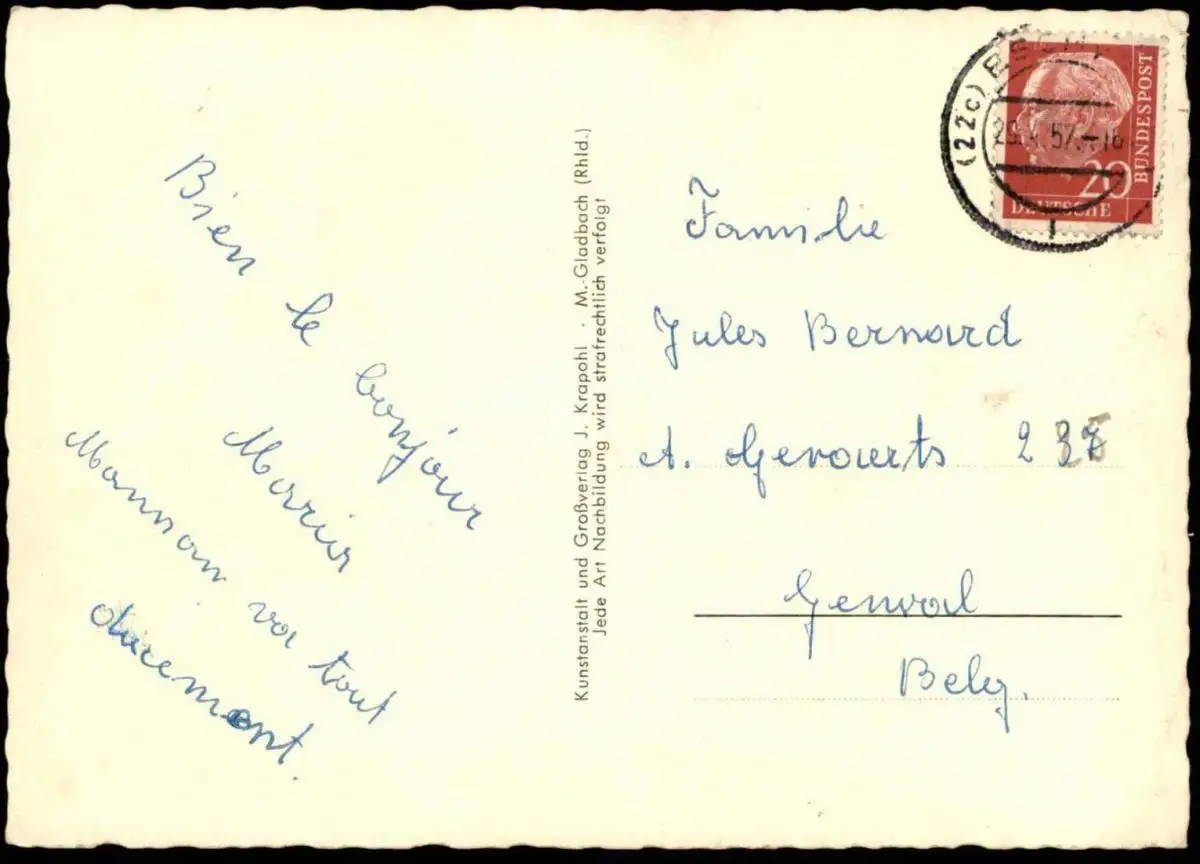 Bien le bonjour
Maman va tout
doucement.
Kunstanstalt und Großverlag J. Krapohl · M.-Gladbach (Rhld.)
Jede Art Nachbildung wird strafrechtlich verfolgt
(22c)
57.-18
20
DEUTSCHE
BUNDESPOST
Familie
Jules Bernard
A. Gevaerts
Genval
Belg.